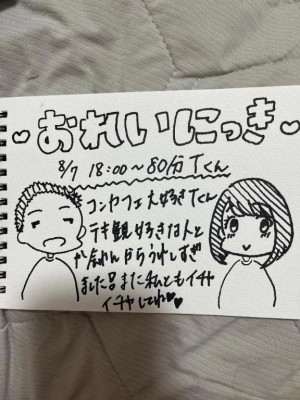 おれいにっき
8/7 18:00〜80分Tくん
コンカフェ大好きTくん
テキ観好きな人と
からうれしすぎ
ましたまた私ともイチャ
イチャしてね♥♥